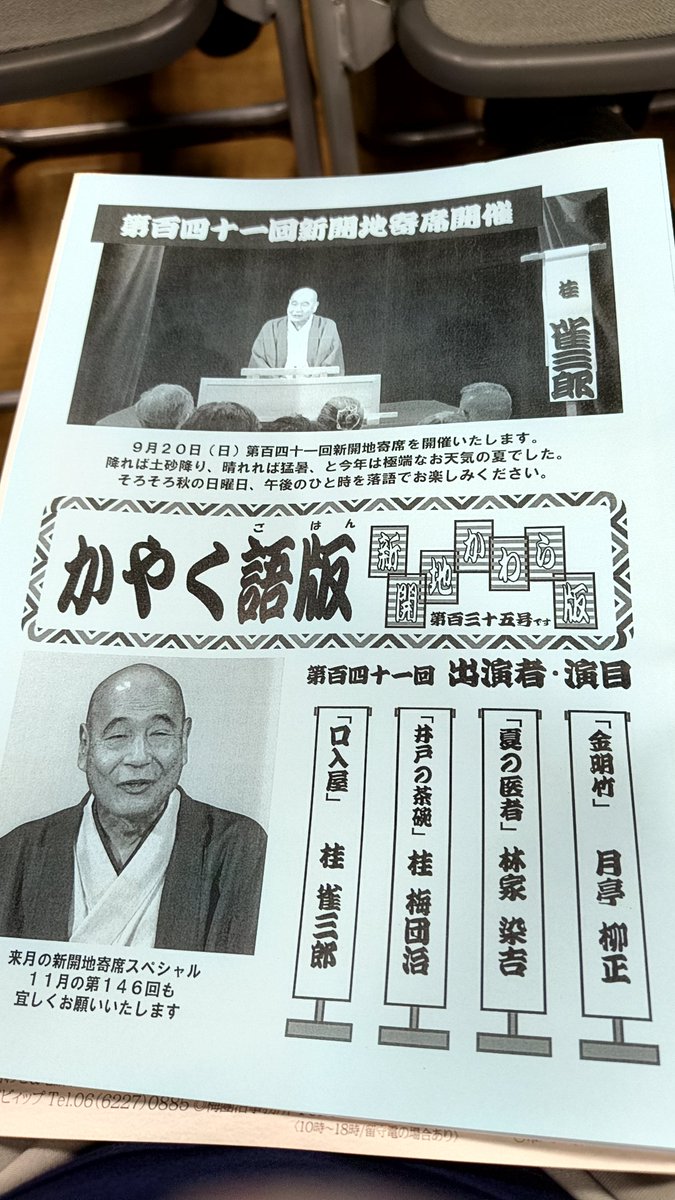 第百四十一回新開地寄席開催
桂 雀三郎
９月２０日（日）第百四十一回新開地寄席を開催いたします。
降れば土砂降り、晴れれば猛暑、と今年は極端なお天気の夏でした。
そろそろ秋の日曜日、午後のひと時を落語でお楽しみください。
ごはん
かやく語版
新開地かわら版
第百三十五号です
第百四十一回 出演者・演目
「金明竹」 月亭 柳正
「夏の医者」 林家 染吉
「井戸の茶碗」 桂 梅団治
「口入屋」 桂 雀三郎
来月の新開地寄席スペシャル
１１月の第１４６回も
宜しくお願いいたします
Tel.06(6227)0885
〈10時〜18時/留守電の場合あり〉